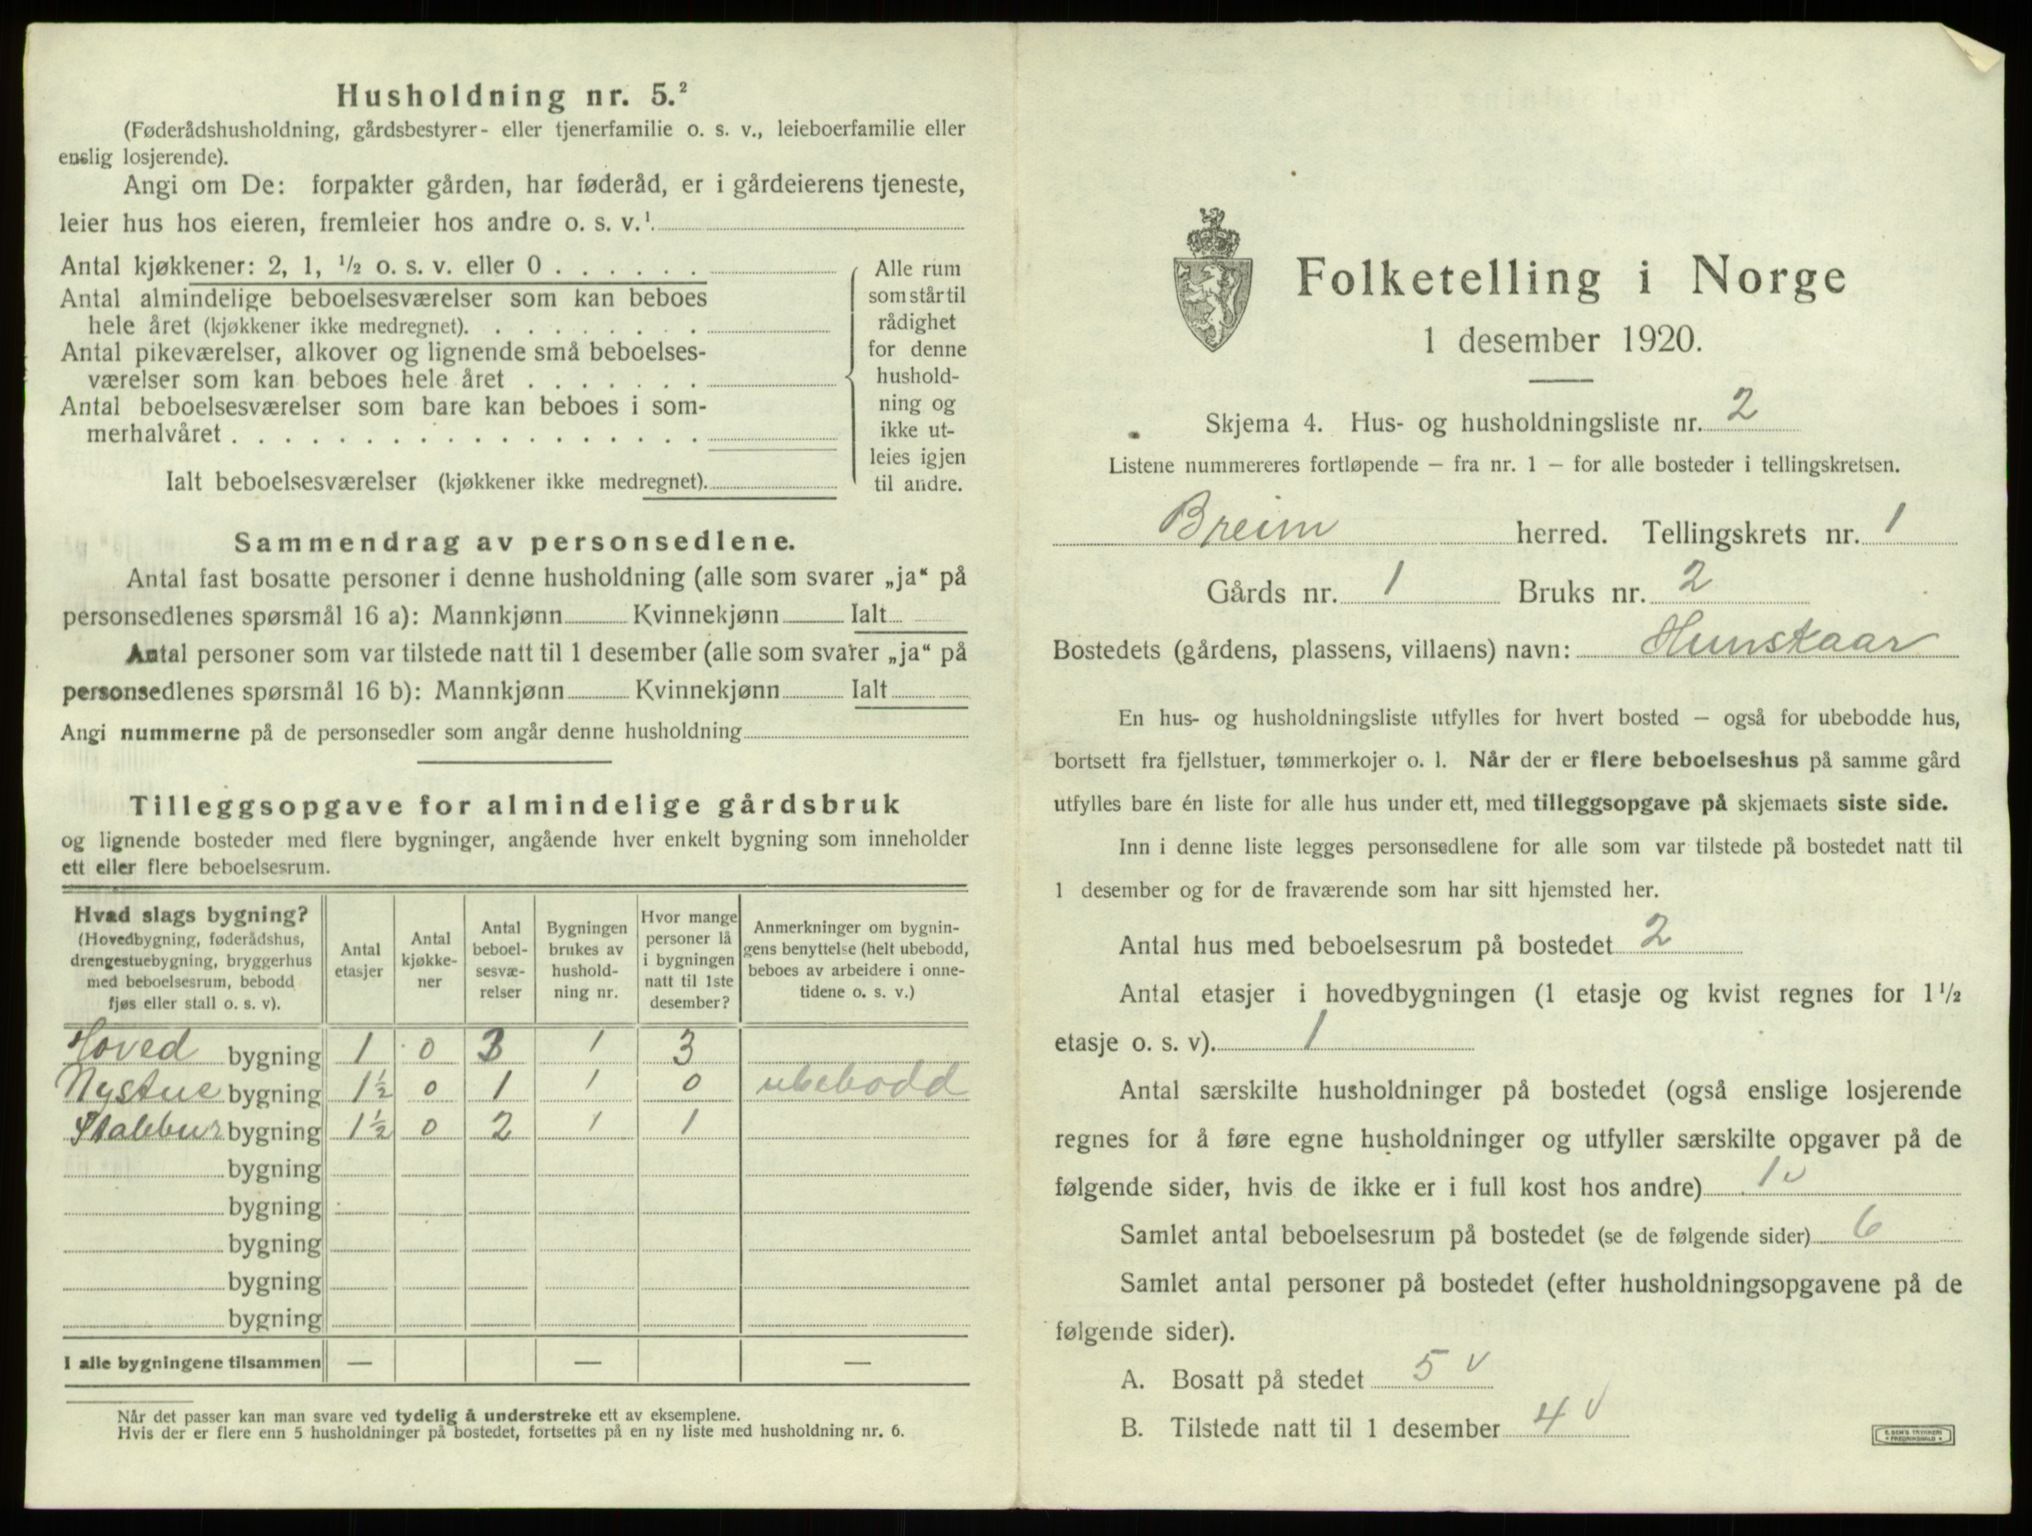 Husholdning nr. 5.²
(Føderådshusholdning, gårdsbestyrer- eller tjenerfamilie o. s. v., leieboerfamilie eller
enslig losjerende).
Angi om De: forpakter gården, har føderåd, er i gårdeierens tjeneste,
leier hus hos eieren, fremleier hos andre o. s. v.¹
Antal kjøkkener: 2, 1, ½ o. s. v. eller 0 . . . . . .
Antal almindelige beboelsesværelser som kan beboes
hele året (kjøkkener ikke medregnet). . . . . . . . .
Antal pikeværelser, alkover og lignende små beboelses-
værelser som kan beboes hele året . . . . . . .
Antal beboelsesværelser som bare kan beboes i som-
merhalvåret . . . . . . . . . . . . . . . . . .
Ialt beboelsesværelser (kjøkkener ikke medregnet).
Alle rum
som står til
rådighet
for denne
hushold-
ning og
ikke ut-
leies igjen
til andre.
Sammendrag av personsedlene.
Antal fast bosatte personer i denne husholdning (alle som svarer „ja“ på
personsedlenes spørsmål 16 a): Mannkjønn Kvinnekjønn Ialt
Antal personer som var tilstede natt til 1 desember (alle som svarer „ja“ på
personsedlenes spørsmål 16 b): Mannkjønn Kvinnekjønn Ialt
Angi nummerne på de personsedler som angår denne husholdning
Tilleggsopgave for almindelige gårdsbruk
og lignende bosteder med flere bygninger, angående hver enkelt bygning som inneholder
ett eller flere beboelsesrum.
Hvad slags bygning?
(Hovedbygning, føderådshus,
drengestuebygning, bryggerhus
med beboelsesrum, bebodd
fjøs eller stall o. s. v).
Antal
etasjer
Antal
kjøkke-
ner
Antal
beboel-
sesvæ-
relser
Bygningen
brukes av
hushold-
ning nr.
Hvor mange
personer lå
i bygningen
natt til 1ste
desember?
Anmerkninger om bygnin-
gens benyttelse (helt ubebodd,
beboes av arbeidere i onne-
tidene o. s. v.)
Hoved bygning 1 0 3 1 3
Nystue bygning 1½ 0 1 1 0 ubebodd
Stabbur bygning 1½ 0 2 1 1
bygning
bygning
bygning
bygning
bygning
I alle bygningene tilsammen — — —
Når det passer kan man svare ved tydelig å understreke ett av eksemplene.
Hvis der er flere enn 5 husholdninger på bostedet, fortsettes på en ny liste med husholdning nr. 6.
Folketelling i Norge
1 desember 1920.
Skjema 4. Hus- og husholdningsliste nr. 2
Listene nummereres fortløpende — fra nr. 1 — for alle bosteder i tellingskretsen.
Breim herred. Tellingskrets nr. 1
Gårds nr. 1 Bruks nr. 2
Bostedets (gårdens, plassens, villaens) navn: Hunskaar
En hus- og husholdningsliste utfylles for hvert bosted — også for ubebodde hus,
bortsett fra fjellstuer, tømmerkojer o. l. Når der er flere beboelseshus på samme gård
utfylles bare én liste for alle hus under ett, med tilleggsopgave på skjemaets siste side.
Inn i denne liste legges personsedlene for alle som var tilstede på bostedet natt til
1 desember og for de fraværende som har sitt hjemsted her.
Antal hus med beboelsesrum på bostedet 2
Antal etasjer i hovedbygningen (1 etasje og kvist regnes for 1½
etasje o. s. v). 1
Antal særskilte husholdninger på bostedet (også enslige losjerende
regnes for å føre egne husholdninger og utfyller særskilte opgaver på de
følgende sider, hvis de ikke er i full kost hos andre) 1 v
Samlet antal beboelsesrum på bostedet (se de følgende sider) 6
Samlet antal personer på bostedet (efter husholdningsopgavene på de
følgende sider).
A. Bosatt på stedet 5 v
B. Tilstede natt til 1 desember 4 v